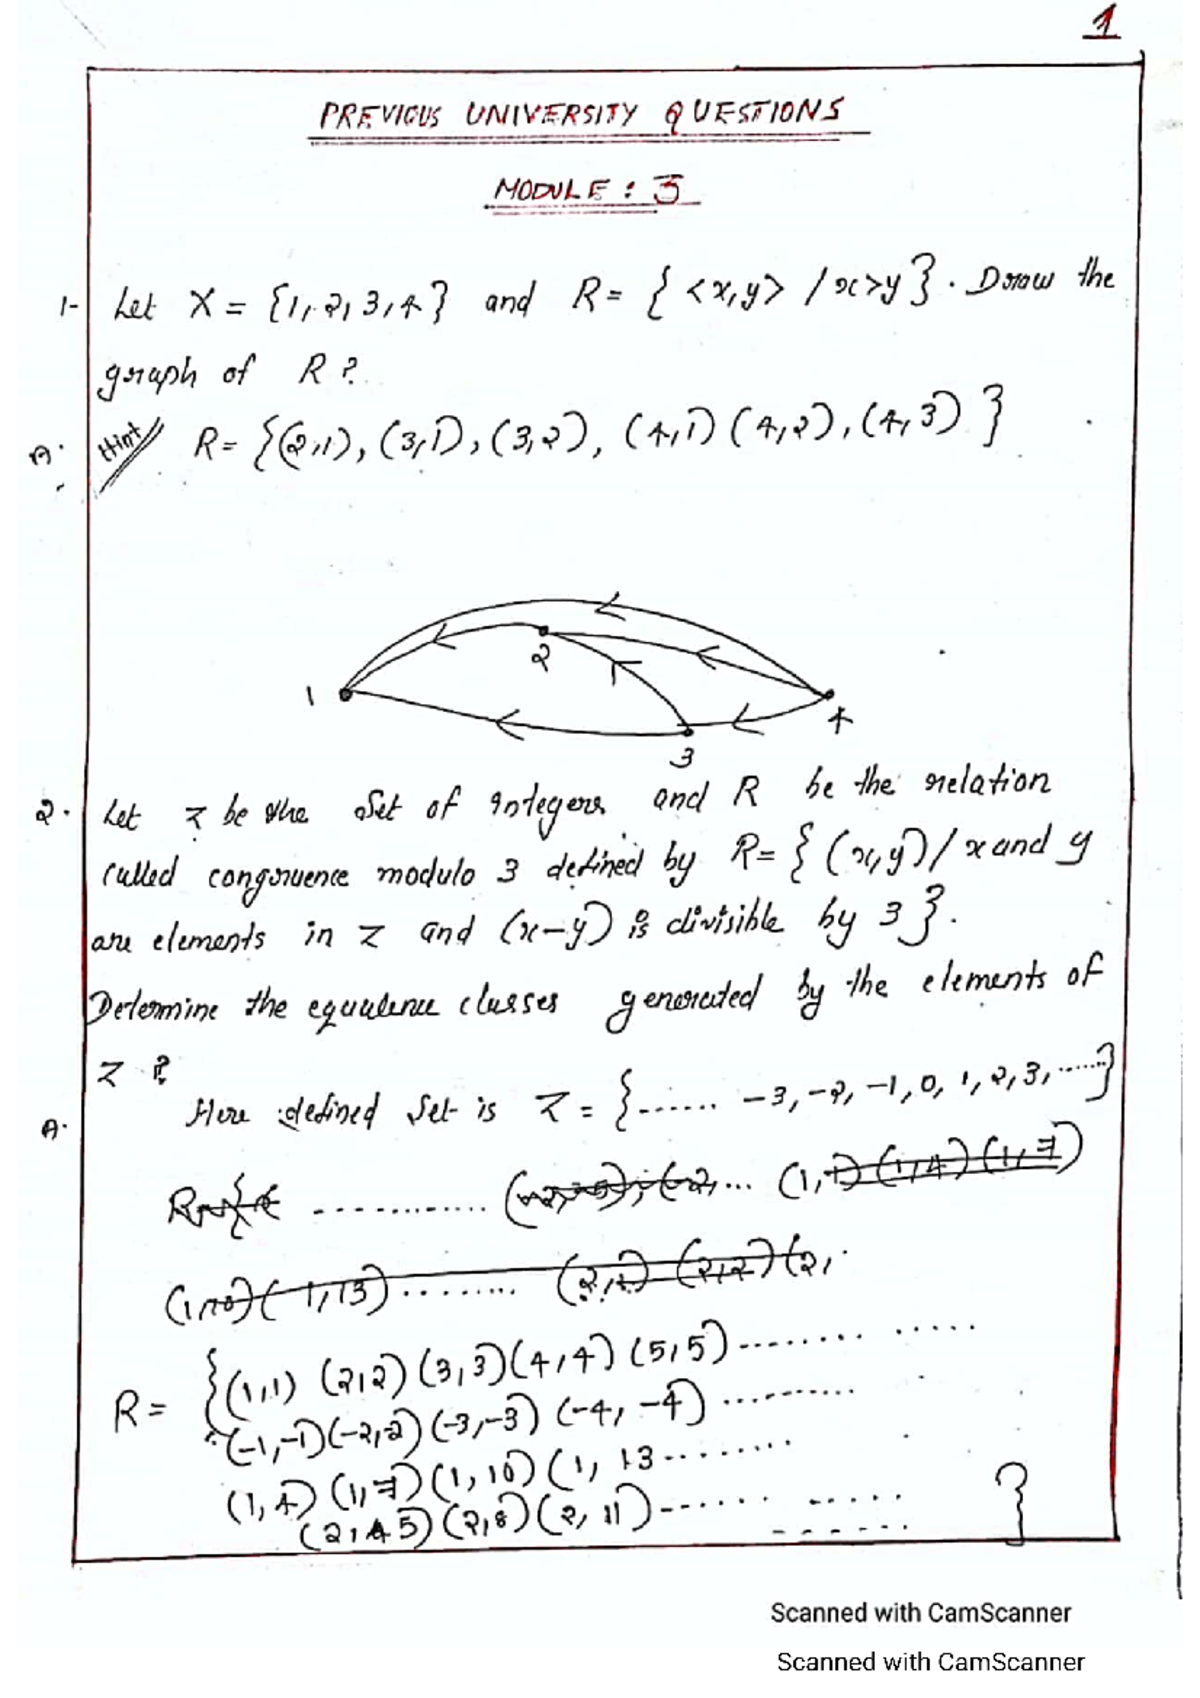 1
PREVIOUS UNIVERSITY QUESTIONS
MODULE : 3
1- Let X = {1, 2, 3, 4} and R = { <x,y> / x>y }. Draw the
graph of R ?
A. Hint R = {(2,1), (3,1), (3,2), (4,1) (4,2), (4,3) }
1 2 3 4
2. Let z be the set of integers and R be the relation
called congruence modulo 3 defined by R = { (x,y) / x and y
are elements in z and (x-y) is divisible by 3 }.
Determine the equivalence classes generated by the elements of
z ?
A. Here defined set is Z = {...... -3, -2, -1, 0, 1, 2, 3, ......}
R = { (1,1) (2,2) (3,3) (4,4) (5,5) ........ .....
(-1,-1) (-2,-2) (-3,-3) (-4, -4) .........
(1,4) (1,7) (1,10) (1, 13 ........
(2, 5) (2,8) (2, 11) ...... ..... }
Scanned with CamScanner
Scanned with CamScanner